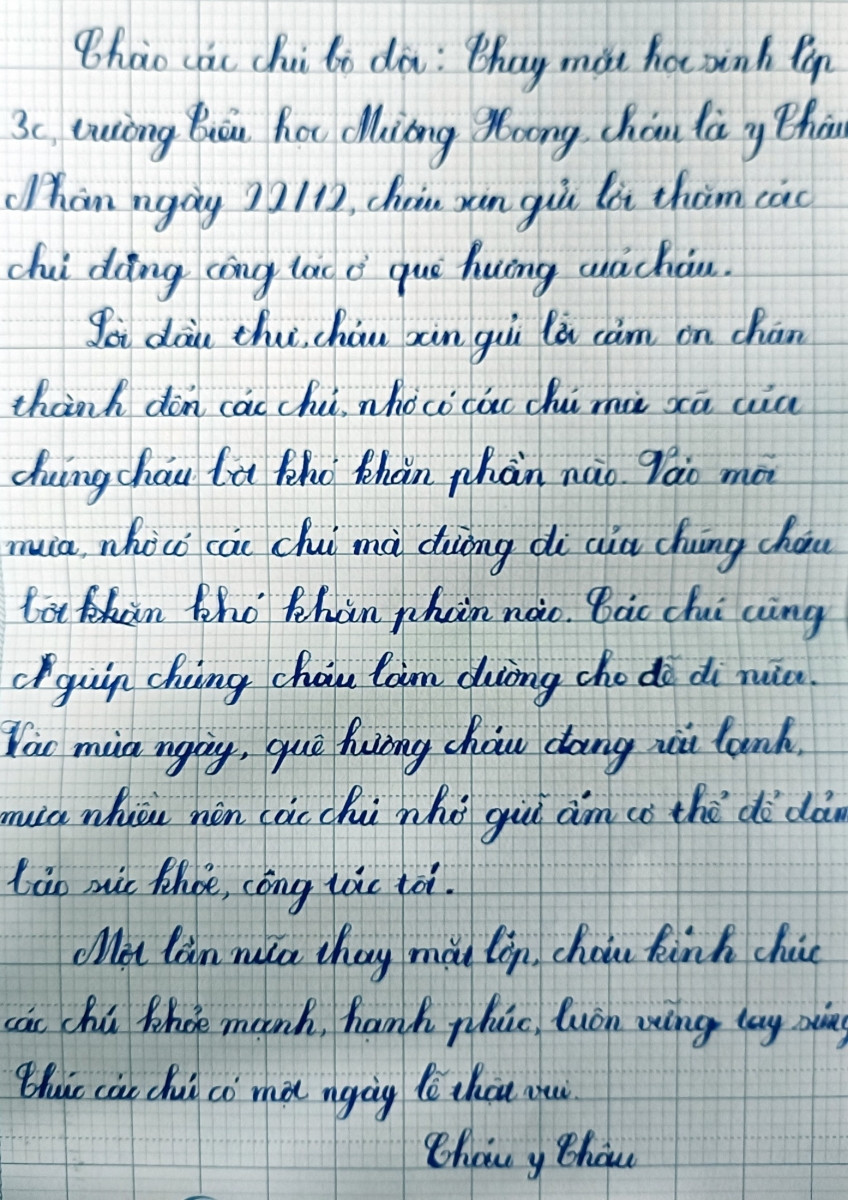 Chào các chú bộ đội: Thay mặt học sinh lớp
3c, trường Tiểu học Mường Hoong, cháu là y Châu
Nhân ngày 22/12, cháu xin gửi lời thăm các
chú đang công tác ở quê hương của cháu.
Lời đầu thư, cháu xin gửi lời cảm ơn chân
thành đến các chú, nhờ có các chú mà xã của
chúng cháu bớt khó khăn phần nào. Vào mỗi
mưa, nhờ có các chú mà đường đi của chúng cháu
bớt khăn khó khăn phần nào. Các chú cũng
giúp chúng cháu làm đường cho dễ đi nữa.
Vào mùa ngày, quê hương cháu đang rất lạnh,
mưa nhiều nên các chú nhớ giữ ấm cơ thể để đảm
bảo sức khỏe, công tác tốt.
Một lần nữa thay mặt lớp, cháu kính chúc
các chú khỏe mạnh, hạnh phúc, luôn vững tay súng
Chúc các chú có một ngày lễ thật vui.
Cháu y Châu